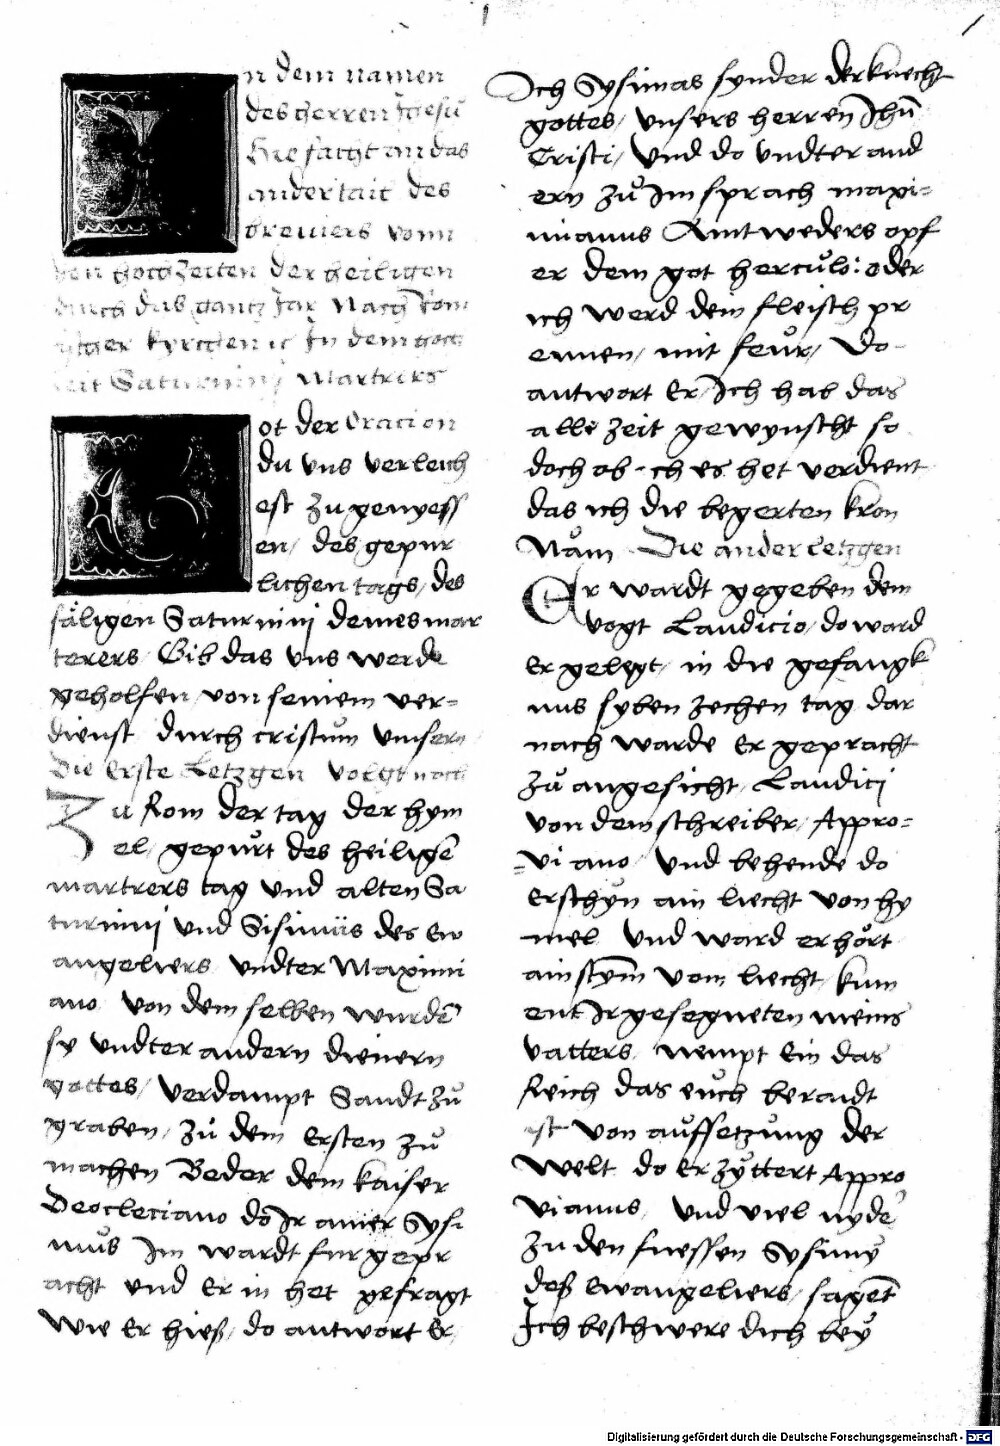 In dem namen
des herren Jhesu
Hie facht an das
ander tail des
breviers vonn
den hochzeiten der heiligen
durch das gantz Jar Nach Röm
kyrchen in dem hoch
zeit Saturnini Martrers
Got der Oracion
du vns verleich
est zu genyess
en, des gepur
lichen tags, des
säligen Saturninj deines mar
terers, Gib das vns werde
geholfen von seinem ver-
dienst durch cristum vnsern
Die erste Letzgen volgt nach
Zu Rom der tag der hym
el, gepůrt des heiligē
martrers tag vnd alten Sa
turninj vnd Sisinnis des Ew
angeliers, vndter Maximi
ano von dem selben wurdē
sy vndter andern dienern
gottes, verdampt Sandt zů
graben, zů dem ersten zů
machen Beder dem kaiser
Deocleciano do Ir ainer Sysi
nnus Im wardt fur gepr
acht vnd Er in het gefragt
wie Er hieß, do antwort Er,
Ich Sysinnas synder der knecht
gottes, vnsers herren Jhū
Cristi, Vnd do vndter and
ern zů Im sprach maxi-
mianus Aintweders opf
er dem got herculo: oder
ich werd dein fleisch pr
ennen, mit feůr, Do
antwort Er, Ich hab das
alle zeit gewynscht so
doch ob ich es het verdient
das ich die begerten kron
Näm Die ander Letzgen
Er wardt gegeben dem
vogt Laudicio, do ward
Er gelegt, in die gefangk
nus syben zechen tag, dar
nach warde Er gepracht
zů angesicht, Laudici
von dem schreiber, Appro-
-viano, vnd behende do
Erschyn ain liecht von hy
mel vnd ward erhört
ain stym̄ vom liecht, kum
ent Ir gesegneten meins
vatters, nempt Ein das
Reich das eůch beraidt
ist von aůffsetzůng der
welt do Er zyttert Appro
vianus, vnd viel nyde
zu den fuessen Sysinny
deß Ewangeliers, sagent
Ich beschwere dich bey
Digitalisierung gefördert durch die Deutsche Forschungsgemeinschaft - DFG